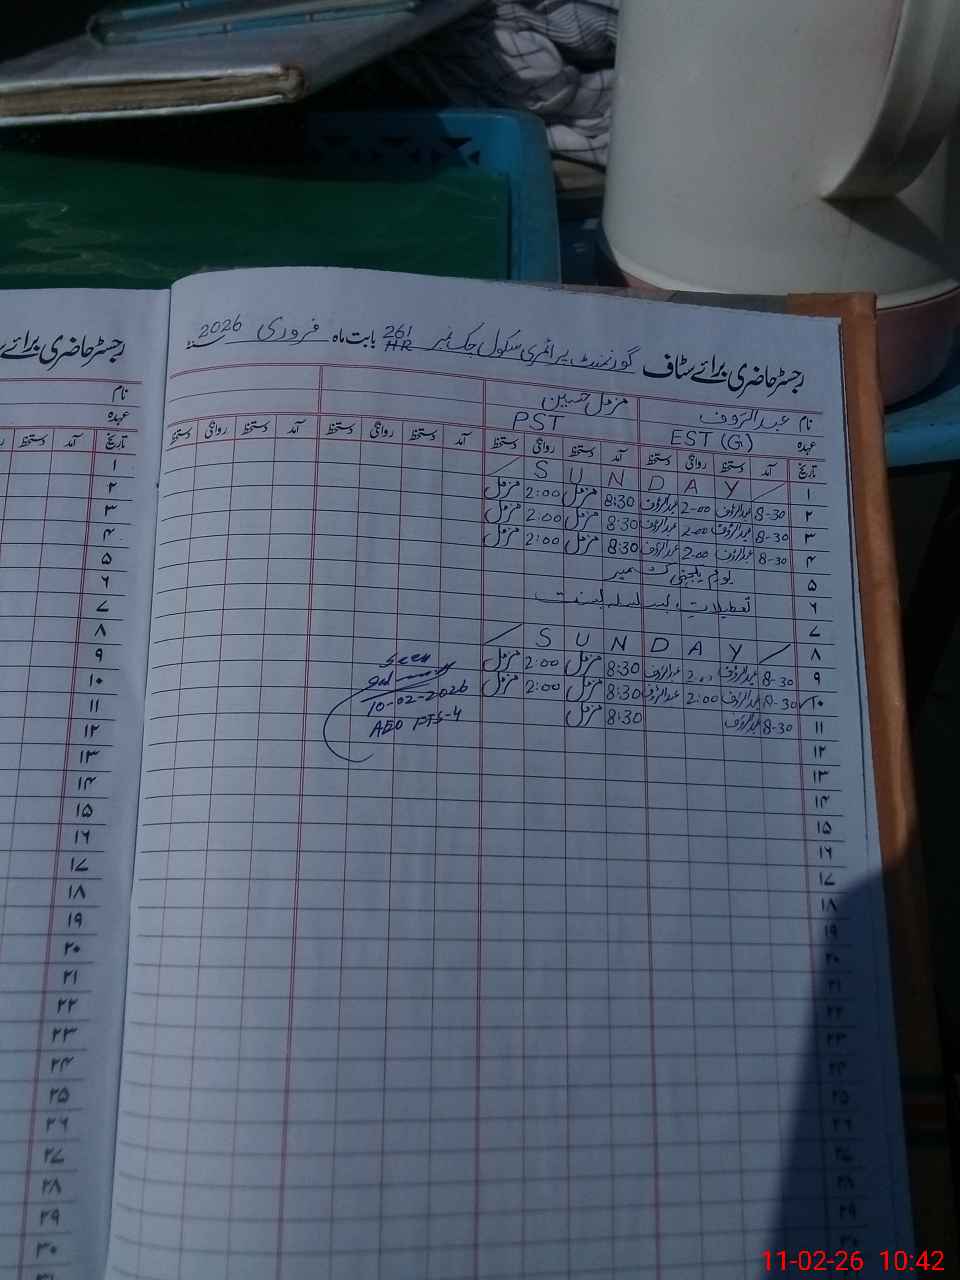 رجسٹر حاضری برائے سٹاف گورنمنٹ پرائمری سکول چک نمبر 261/HR بابت ماہ فروری 2026
نام عبدالرؤف مزمل حسین
عہدہ EST (G) PST
تاریخ آمد دستخط روانگی دستخط آمد دستخط روانگی دستخط آمد دستخط روانگی دستخط آمد دستخط روانگی دستخط
۱ S U N D A Y
۲ 8-30 عبدالرؤف 2-00 عبدالرؤف 8:30 مزمل 2:00 مزمل
۳ 8-30 عبدالرؤف 2-00 عبدالرؤف 8:30 مزمل 2:00 مزمل
۴ 8-30 عبدالرؤف 2-00 عبدالرؤف 8:30 مزمل 2:00 مزمل
۵ یوم یکجہتی کشمیر
۶ تعطیلات بسلسلہ بسنت
۷
۸ S U N D A Y
۹ 8-30 عبدالرؤف 2-00 عبدالرؤف 8:30 مزمل 2:00 مزمل
۱۰ 8-30 عبدالرؤف 2:00 عبدالرؤف 8:30 مزمل 2:00 مزمل
۱۱ 8-30 عبدالرؤف 8:30 مزمل
Seen
10-02-2026
AEO
۱۲
۱۳
۱۴
۱۵
۱۶
۱۷
۱۸
۱۹
۲۰
۲۱
۲۲
۲۳
۲۴
۲۵
۲۶
۲۷
۲۸
۲۹
۳۰
رجسٹر حاضری برائے
نام
عہدہ
تاریخ آمد دستخط
۱
۲
۳
۴
۵
۶
۷
۸
۹
۱۰
۱۱
۱۲
۱۳
۱۴
۱۵
۱۶
۱۷
۱۸
۱۹
۲۰
۲۱
۲۲
۲۳
۲۴
۲۵
۲۶
۲۷
۲۸
۲۹
۳۰
11-02-26 10:42